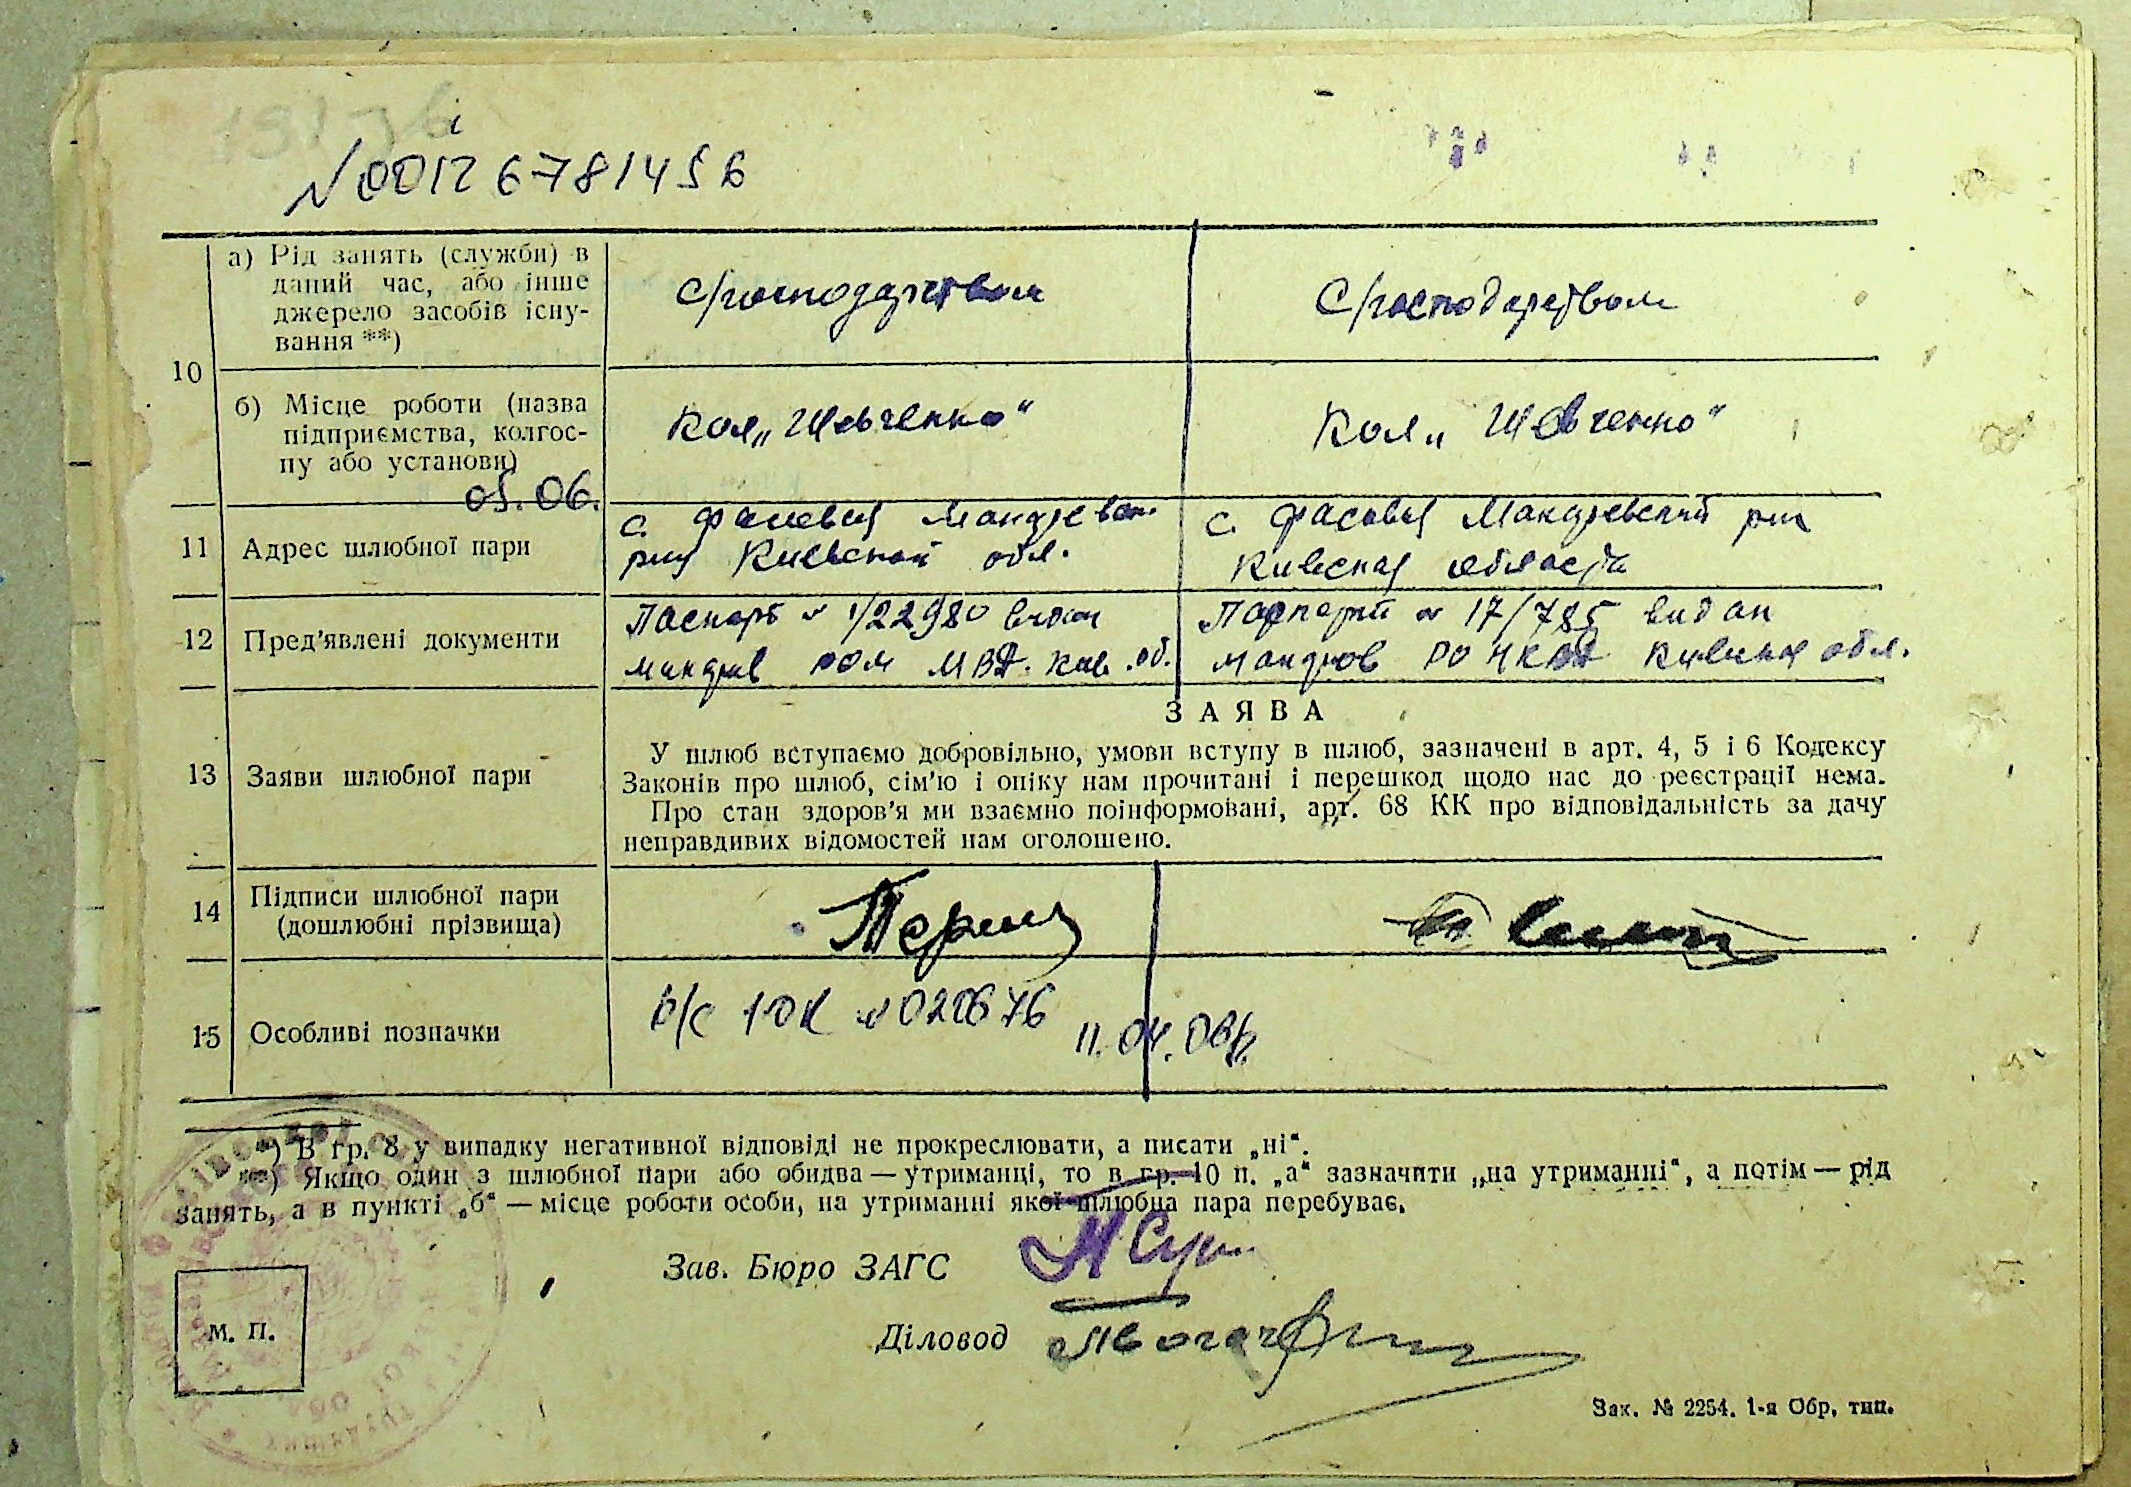 №00126781456
а) Рід занять (служби) в
даний час, або інше
джерело засобів існу-
вання **)
С/господарством
С/господарством
10
б) Місце роботи (назва
підприємства, колгос-
пу або установи)
Кол „Шевченко"
Кол „Шевченко"
05.06.
11
Адрес шлюбної пари
с. Фасовая
обл.
с. Фасовая Макаровский р-н
Киевская область
12
Пред'явлені документи
Паспорт № 1/22980 видан
РОМ МВД Киів. об.
Паспорт № 17/785 видан
РО НКВД обл.
ЗАЯВА
13
Заяви шлюбної пари
У шлюб вступаємо добровільно, умови вступу в шлюб, зазначені в арт. 4, 5 і 6 Кодексу
Законів про шлюб, сім'ю і опіку нам прочитані і перешкод щодо нас до реєстрації нема.
Про стан здоров'я ми взаємно поінформовані, арт. 68 КК про відповідальність за дачу
неправдивих відомостей нам оголошено.
14
Підписи шлюбної пари
(дошлюбні прізвища)
15
Особливі позначки
№ 020676
11.04.06
*) В гр. 8 у випадку негативної відповіді не прокреслювати, а писати „ні".
**) Якщо один з шлюбної пари або обидва — утриманці, то в гр. 10 п. „а" зазначити „на утриманні", а потім — рід
занять, а в пункті „б" — місце роботи особи, на утриманні якої шлюбна пара перебуває.
Зав. Бюро ЗАГС
Діловод
М. П.
Зак. № 2254. 1-я Обр. тип.